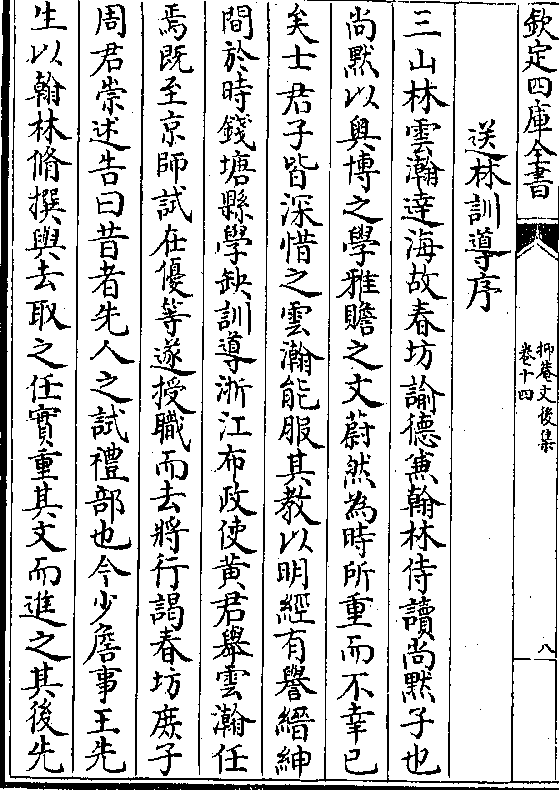 欽定四庫全書
抑菴文後集
卷十四
八
送林訓導序
三山林雲瀚逹海故春坊諭德兼翰林侍讀尚黙子也
尚黙以奥博之學雅贍之文蔚然為時所重而不幸已
矣士君子皆深惜之雲瀚能服其教以明經有譽縉紳
間於時錢塘縣學缺訓導浙江布政使黄君舉雲瀚任
焉既至京師試在優等遂授職而去將行謁春坊庶子
周君崇述告曰昔者先人之試禮部也今少詹事王先
生以翰林脩撰與去取之任實重其文而進之其後先